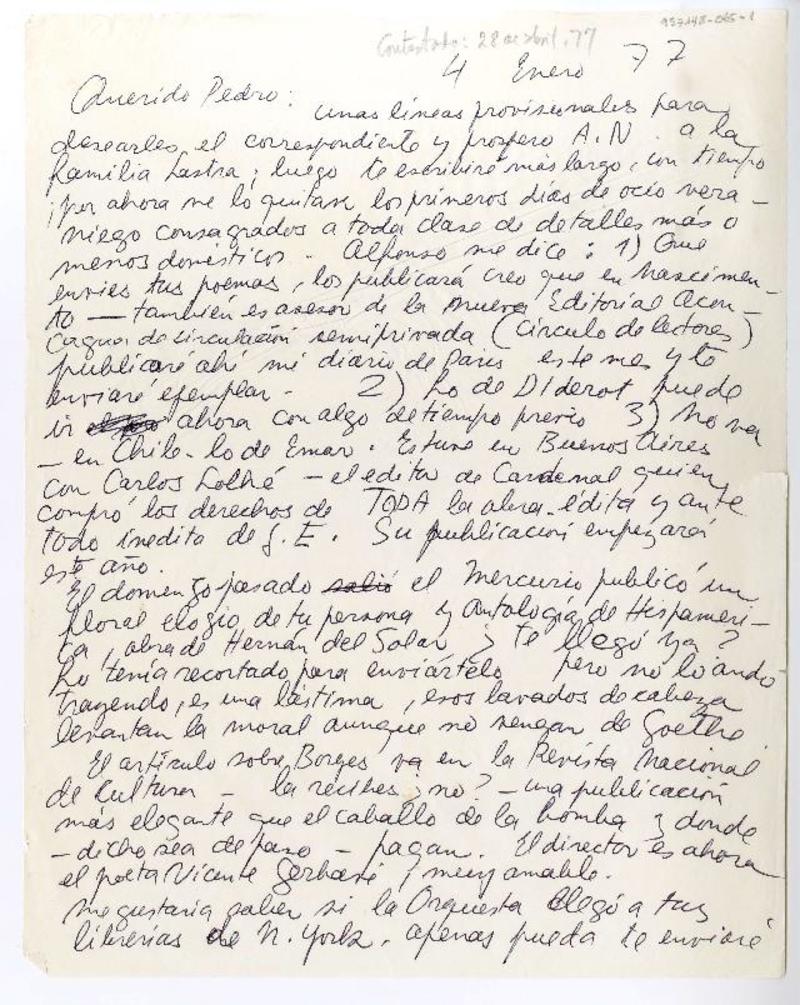 957148-065-1
Contestada: 28 de abril, 77
4 Enero 77
Querido Pedro: unas líneas provisionales para
desearles el correspondiente y prospero A.N. a la
familia Lastra; luego te escribiré más largo, con tiempo
¡por ahora me lo quitase los primeros días de ocio vera-
niego consagrados a toda clase de detalles más o
menos domésticos. Alfonso me dice: 1) Que
envíes tus poemas, los publicará creo que en Nascimen-
to — también es asesor de la nueva Editorial Acon-
cagua de circulación semiprivada (círculo de lectores)
publicaré ahí mi diario de París este mes y te
enviaré ejemplar. 2) Lo de Diderot puede
ir ahora con algo de tiempo previo 3) No va
- en Chile - lo de Emar. Estuve en Buenos Aires
con Carlos Lohlé - el editor de Cardenal quien
compró los derechos de TODA la obra édita y ante
todo inedita de J.E. Su publicación empezará
este año.
El domingo pasado salió el Mercurio publicó un
floral elogio de tu persona y antología de Hispaméri-
ca, obra de Hernán del Solar ¿te llegó ya?
Lo tenía recortado para enviártelo pero no lo ando
trayendo, es una lástima, esos lavados de cabeza
levantan la moral aunque no vengan de Goethe
El artículo sobre Borges va en la Revista Nacional
de Cultura - la recibes ¿no? - una publicación
más elegante que el caballo de la bomba y donde
- dicho sea de paso - pagan. El director es ahora
el poeta Vicente Gerbasi, muy amable.
Me gustaría saber si la Orquesta llegó a tus
librerías de N. York. Apenas pueda te enviaré